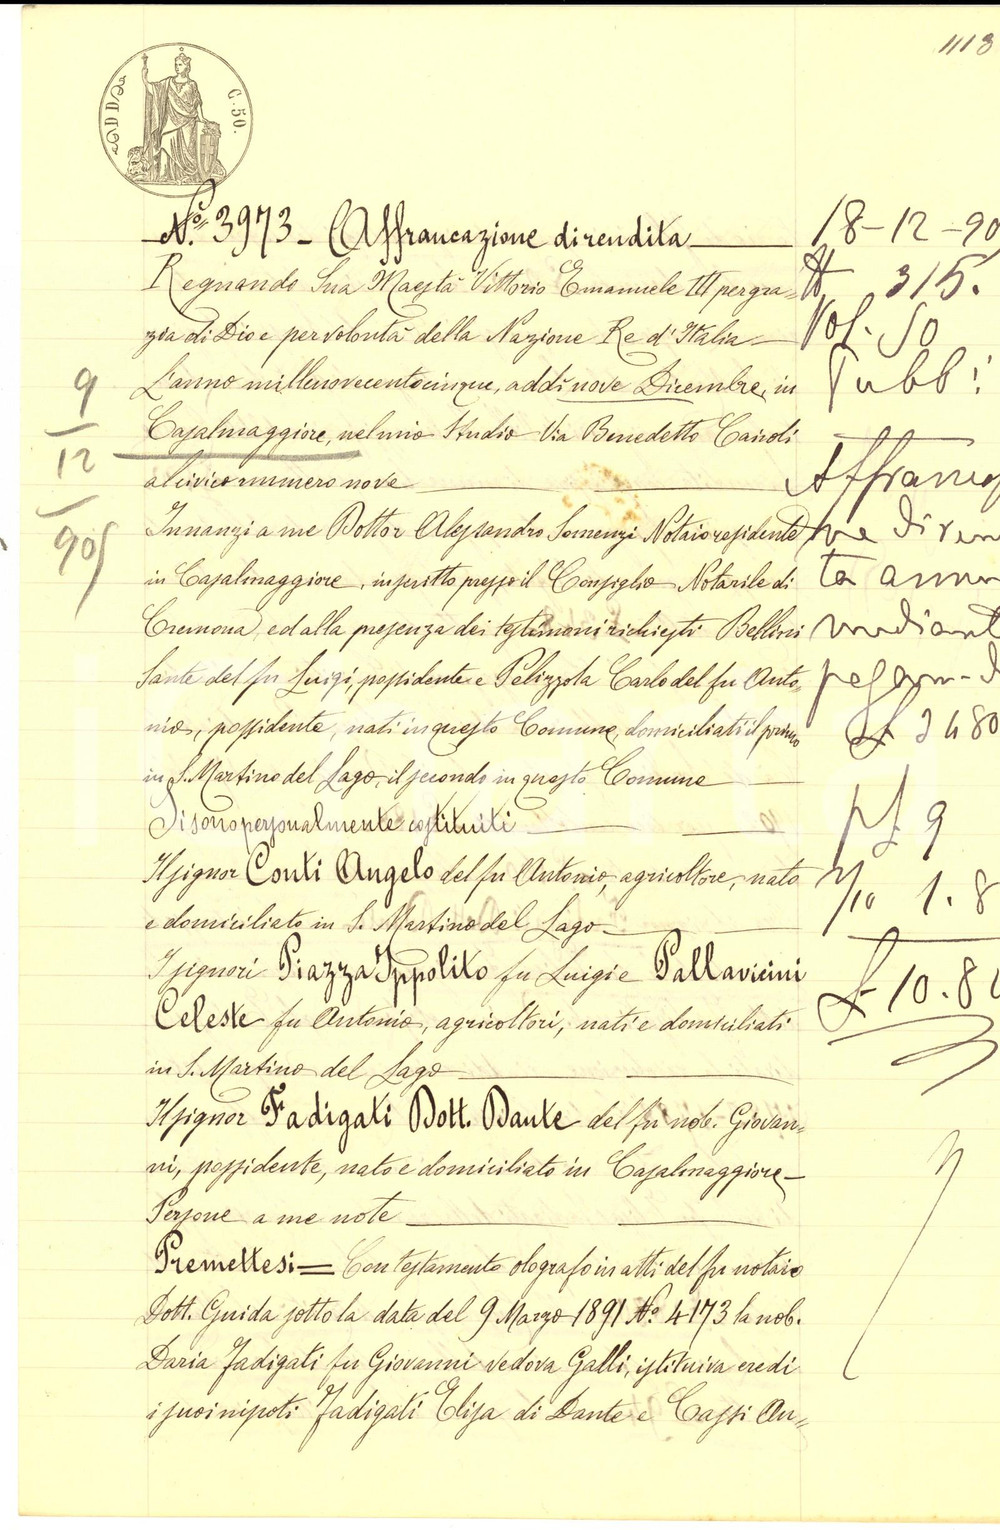 1118
C. 50.
N.º 3973 - Affrancazione di rendita
Regnando Sua Maestà Vittorio Emanuele III per gra=
zia di Dio e per volontà della Nazione Re d'Italia
L'anno millenovecentocinque, addì nove Dicembre, in
Casalmaggiore, nel mio Studio Via Benedetto Cairoli
al civico numero nove
Innanzi a me Dottor Alessandro Somenzi Notaio residente
in Casalmaggiore, inscritto presso il Consiglio Notarile di
Cremona, ed alla presenza dei testimoni richiesti Bellini
Sante del fu Luigi, possidente e Pelizzola Carlo del fu Anto=
nio, possidente, nati in questo Comune, domiciliati il primo
in S. Martino del Lago, il secondo in questo Comune
Si sono personalmente costituiti
Il signor Conti Angelo del fu Antonio, agricoltore, nato
e domiciliato in S. Martino del Lago
I signori Piazza Ippolito fu Luigi e Pallavicini
Celeste fu Antonio, agricoltori, nati e domiciliati
in S. Martino del Lago
Il signor Fadigati Dott. Dante del fu nob. Giovan=
ni, possidente, nato e domiciliato in Casalmaggiore
Persone a me note
Premettesi = Con testamento olografo in atti del fu notaio
Dott. Guida sotto la data del 9 Marzo 1891 N.º 4173 la nob.
Daria Fadigati fu Giovanni vedova Galli, istituiva eredi
i suoi nipoti Fadigati Elisa di Dante e Cassi An=
9
12
905
18-12-90
N 315.
Vol. 50
Pubbi
Affranca
ne di ren
ta annu
mediant
pagam- d
£ 3480
pf 9
2/10 1.8
£ 10.8